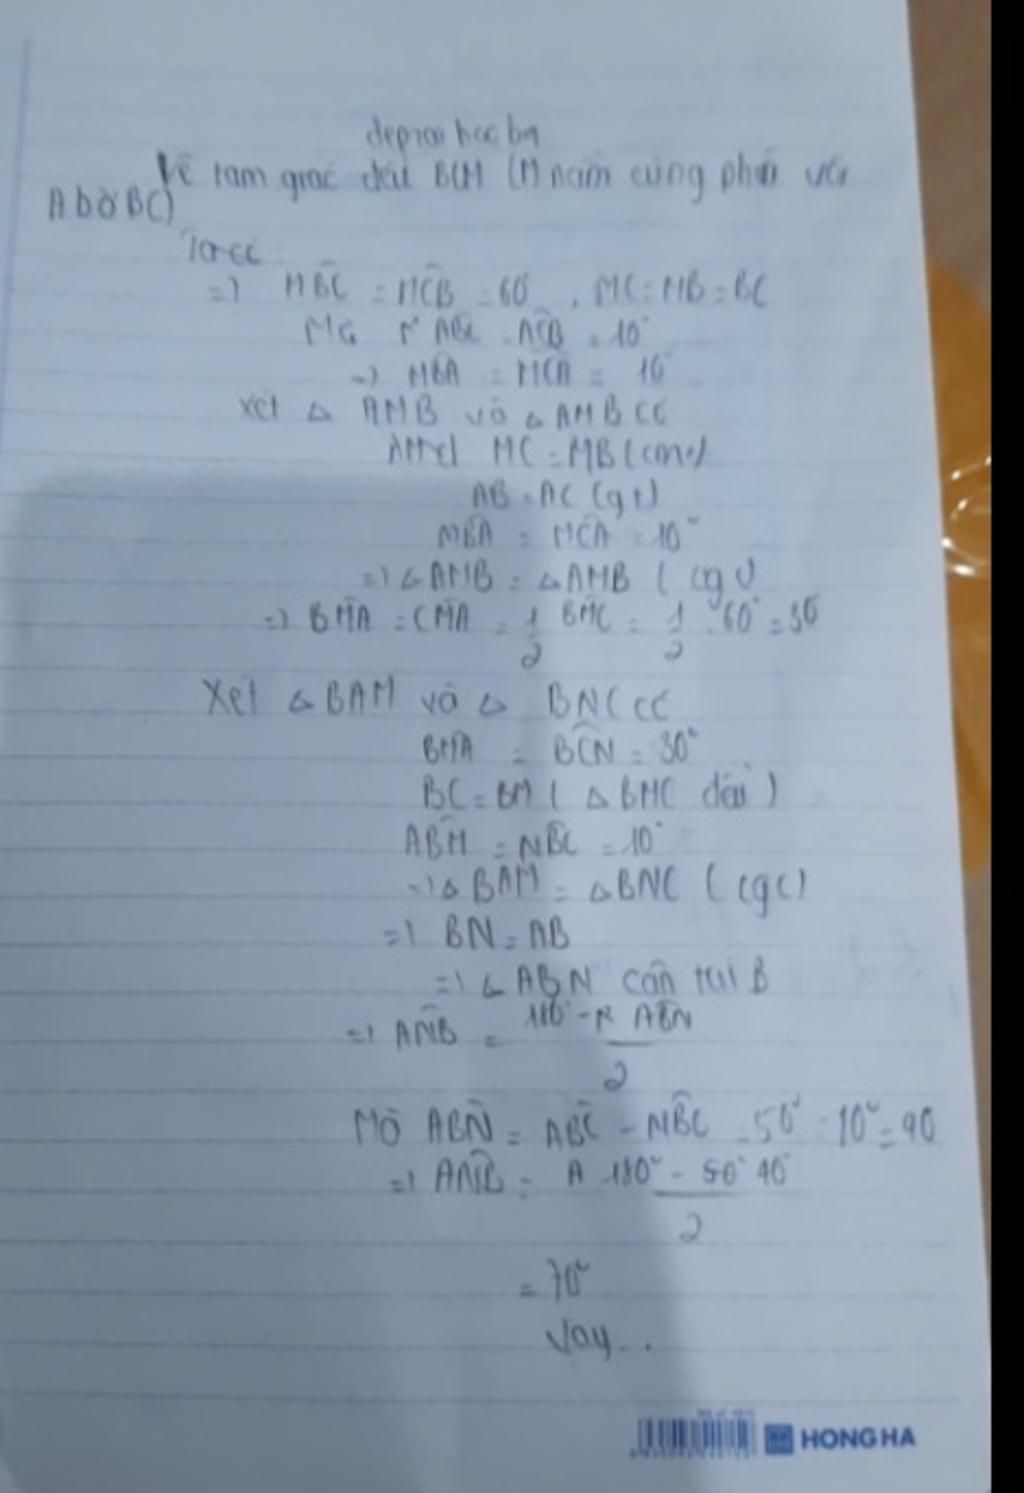 Vẽ tam giác đều BCM (M nằm cùng phía với
A bờ BC)
Ta có:
=> MBC = MCB = 60°, MC = MB = BC
Mà ABC = ACB = 10°
=> MBA = MCA = 10
Xét △ AMB và △ AMB có
MC = MB (cmt)
AB = AC (gt)
MBA = MCA = 10°
=> △ AMB = △ AMB (cgc)
=> BMA = CMA = 1/2 BMC = 1/2 . 60° = 30
Xét △ BAM và △ BNC có
BMA = BCN = 30°
BC = BM ( △ BMC đều )
ABM = NBC = 10°
=> △ BAM = △ BNC (cgc)
=> BN = AB
=> △ ABN cân tại B
=> ANB = 180° - ABN / 2
Mà ABN = ABC - NBC = 50° - 10° = 40
=> ANB = 180° - 40° / 2
= 70°
Vậy...
HONG HA